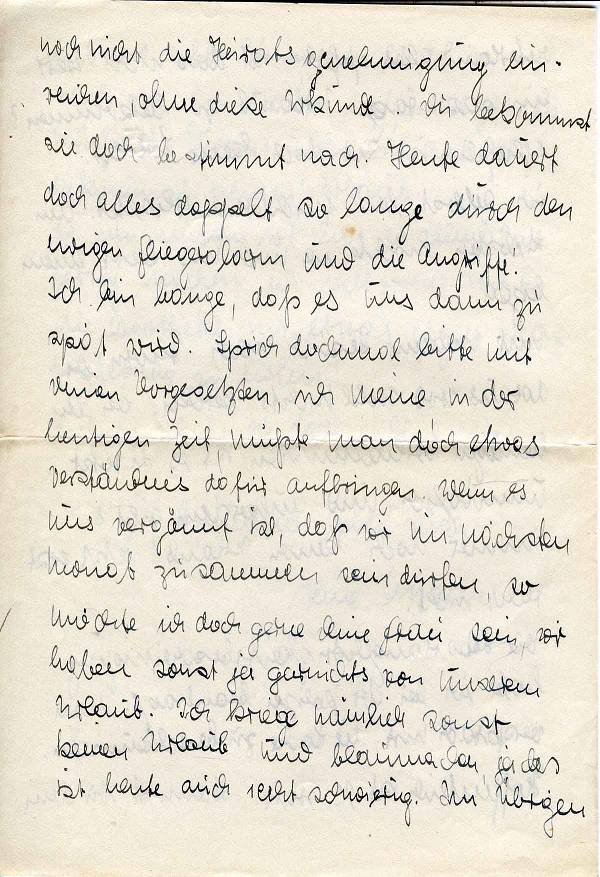 noch nicht die Heiratsgenehmigung ein-
reichen, ohne diese Urkunde. Du bekommst
sie doch bestimmt nach. Heute dauert
doch alles doppelt so lange durch den
ewigen Fliegeralarm und die Angriffe.
Ich bin bange, daß es uns dann zu
spät wird. Sprich dochmal bitte mit
deinen Vorgesetzten, ich meine in der
heutigen Zeit, müßte man doch etwas
Verständnis dafür aufbringen. Wenn es
uns vergönnt ist, daß wir im nächsten
Monat zusammen sein dürfen, so
möchte ich doch gerne deine Frau sein, wir
haben sonst ja garnichts von unserem
Urlaub. Ich kriege nämlich sonst
keinen Urlaub und blaumachen, ja das
ist heute auch recht schwierig. Im Übrigen